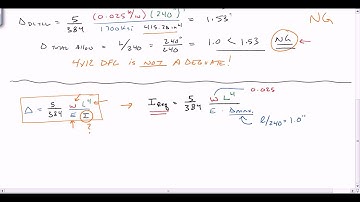 Δ DL+LL = 5/384 (0.025 k/in)(240")⁴ / 1700ksi · 415.28 in⁴ = 1.53" NG
Δ TOTAL ALLOW = L/240 = 240"/240 = 1.0" < 1.53" NG
4x12 DFL IS NOT ADEQUATE!
Δ = 5/384 w L⁴ / E I → I Req = 5/384 w L⁴ / E · Δmax 0.025
?
l/240 = 1.0"